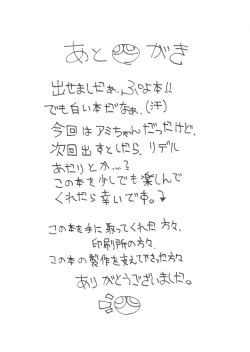 あとがき
出せましたぁ、ぷよ本!!
でも白い本だなぁ、(汗)
今回はアミちゃんだったけど、
次回出すとしたら、リデル
あたりとか…?
この本を少しでも楽しんで
くれたら幸いです。
この本を手に取ってくれた方々、
印刷所の方々、
この本の製作を支えて下さった方々
ありがとうございました。